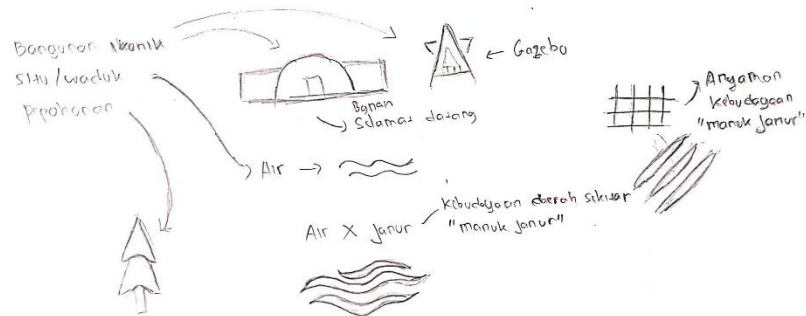 Bangunan Ikonik
Situ/waduk
Pepohonan
Gazebo
Selamat datang
Air
Air X Janur
Kebudayaan daerah sekitar
"manuk Janur"
Anyaman
Kebudayaan
"manuk janur"